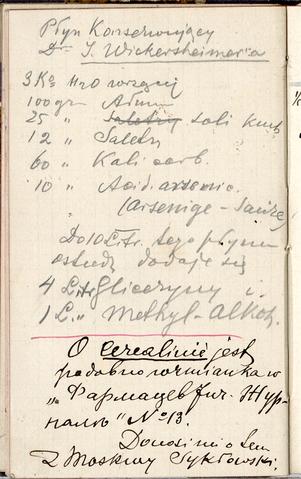 Płyn Konserwujący
Dr. J. Wickersheimer'a
3 Ko H2O wrzącej
100 gr. Ałun
25 " Saletry soli kuch
12 " Saletry
60 " Kali carb.
10 " Acid. arsenic.
(Arsenige-Säure)
Do 10 Litr. tego płynu
dodaje się
4 Litr. Gliceryny i
1 L. " Methyl-alkoh.
O cerealinie jest
podobno wzmianka w
„Фармацев Жур-
налѣ" № 13.
Donosi mi o tem
z Moskwy